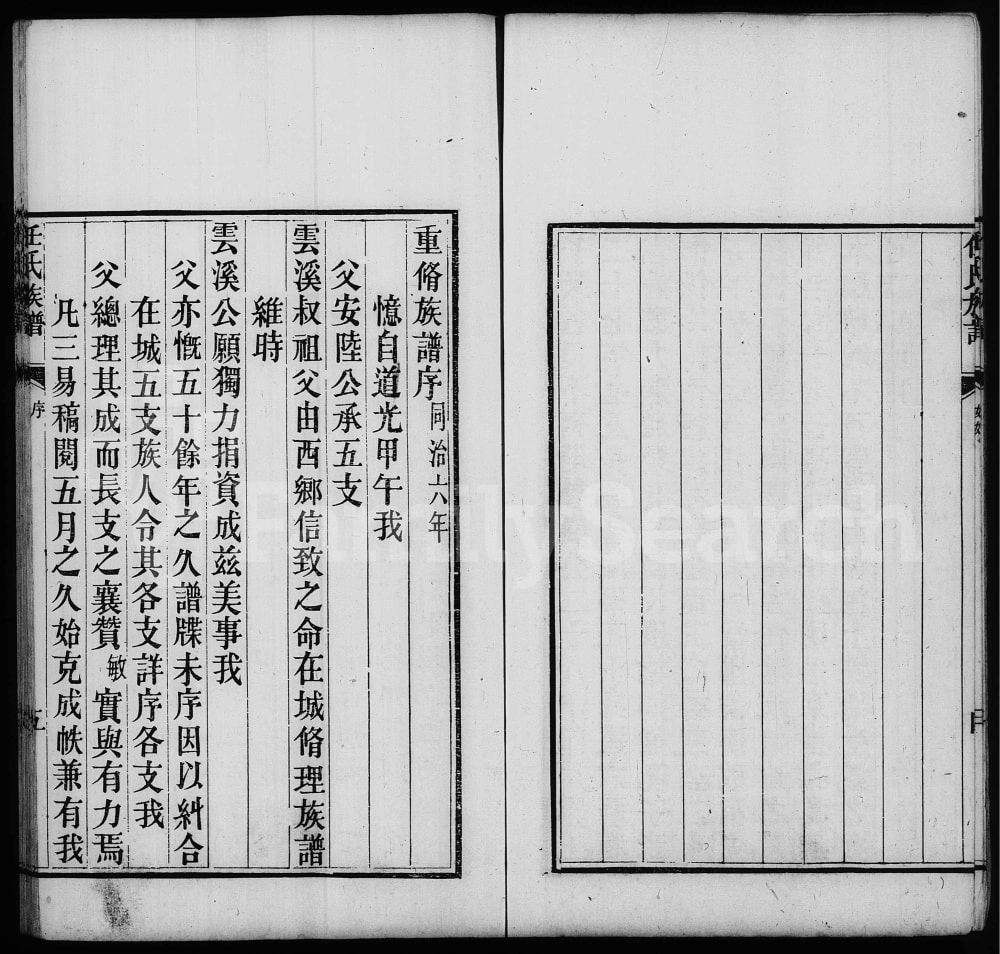 任氏族譜
重脩族譜序 同治六年
憶自道光甲午我
父安陸公承五支
雲溪叔祖父由西鄉信致之命在城脩理族譜
維時
雲溪公願獨力捐資成茲美事我
父亦慨五十餘年之久譜牒未序因以糾合
在城五支族人令其各支詳序各支我
父總理其成而長支之襄贊敏實與有力焉
凡三易稿閱五月之久始克成帙兼有我
任氏族譜 序 五
FamilySearch